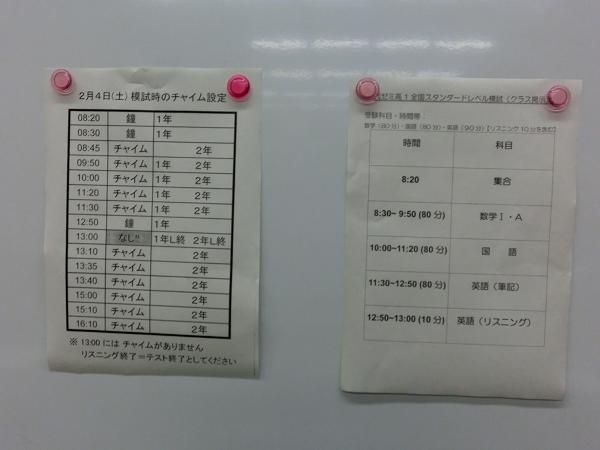 2月4日(土) 模試時のチャイム設定
08:20 鐘 1年
08:30 鐘 1年
08:45 チャイム 2年
09:50 チャイム 1年 2年
10:00 チャイム 1年 2年
11:20 チャイム 1年 2年
11:30 チャイム 1年 2年
12:50 鐘 1年
13:00 なし!! 1年L終 2年L終
13:10 チャイム 2年
13:35 チャイム 2年
13:40 チャイム 2年
15:00 チャイム 2年
15:10 チャイム 2年
16:10 チャイム 2年
※ 13:00 には チャイムがありません
リスニング終了=テスト終了としてください
ゼミ高1全国スタンダードレベル模試(クラス
受験科目・時間帯:
数学(80分)・国語(80分)・英語(90分)【リスニング10分を含む】
時間 科目
8:20 集合
8:30~ 9:50 (80 分) 数学Ⅰ・A
10:00~11:20 (80 分) 国 語
11:30~12:50 (80 分) 英語(筆記)
12:50~13:00 (10 分) 英語(リスニング)